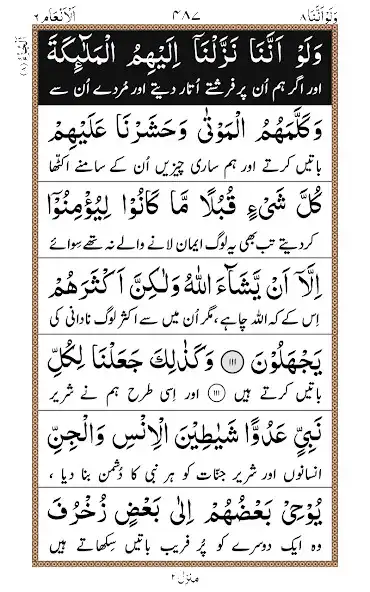 ولو اننا ٨ ٤٨٧ الانعام ٦
الجزء (٨)
وَلَوْ اَنَّنَا نَزَّلْنَاۤ اِلَيْهِمُ الْمَلٰٓئِكَةَ
اور اگر ہم اُن پر فرشتے اُتار دیتے اور مُردے اُن سے
وَكَلَّمَهُمُ الْمَوْتٰى وَحَشَرْنَا عَلَيْهِمْ
باتیں کرتے اور ہم ساری چیزیں اُن کے سامنے اکٹھا
كُلَّ شَيْءٍ قُبُلًا مَّا كَانُوْا لِيُؤْمِنُوْۤا
کردیتے تب بھی یہ لوگ ایمان لانے والے نہ تھے سوائے
اِلَّاۤ اَنْ يَّشَآءَ اللّٰهُ وَلٰكِنَّ اَكْثَرَهُمْ
اِس کے کہ اللہ چاہے، مگر اُن میں سے اکثر لوگ نادانی کی
يَجْهَلُوْنَ ﴿١١١﴾ وَكَذٰلِكَ جَعَلْنَا لِكُلِّ
باتیں کرتے ہیں ﴿١١١﴾ اور اِسی طرح ہم نے شریر
نَبِيٍّ عَدُوًّا شَيٰطِيْنَ الْاِنْسِ وَالْجِنِّ
انسانوں اور شریر جنّات کو ہر نبی کا دُشمن بنا دیا ،
يُوْحِيْ بَعْضُهُمْ اِلٰى بَعْضٍ زُخْرُفَ
وہ ایک دوسرے کو پُر فریب باتیں سِکھاتے ہیں
منزل ٢